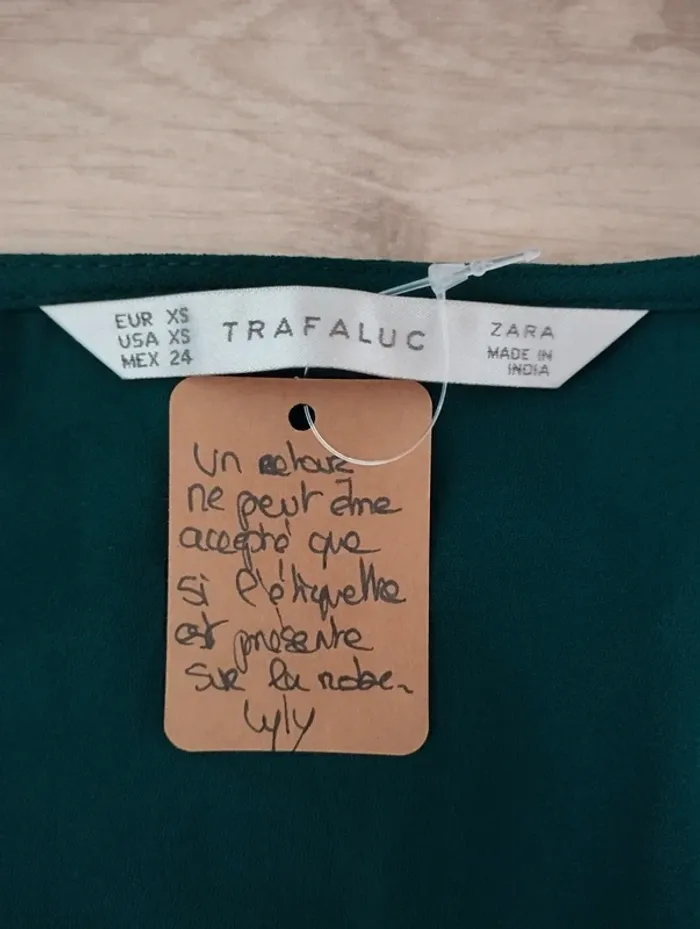 EUR XS
USA XS
MEX 24
TRAFALUC
ZARA
MADE IN
INDIA
Un retour
ne peut être
accepté que
si l'étiquette
est présente
sur la robe.
Lyly